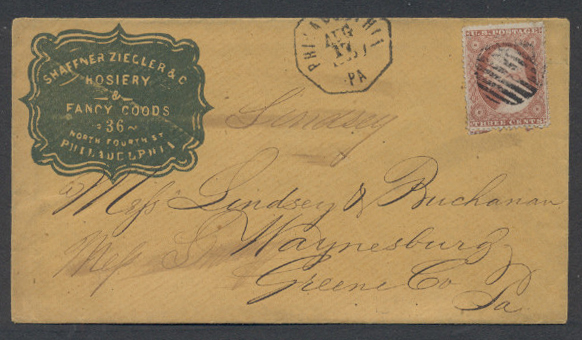 SHAFFNER ZIEGLER & C
HOSIERY
&
FANCY GOODS
36
NORTH FOURTH ST.
PHILADELPHIA
AUG
17
PA
U.S. POSTAGE
THREE CENTS
Lindsey
Mess Lindsey & Buchanan
Waynesburg
Greene Co
Pa
Mess